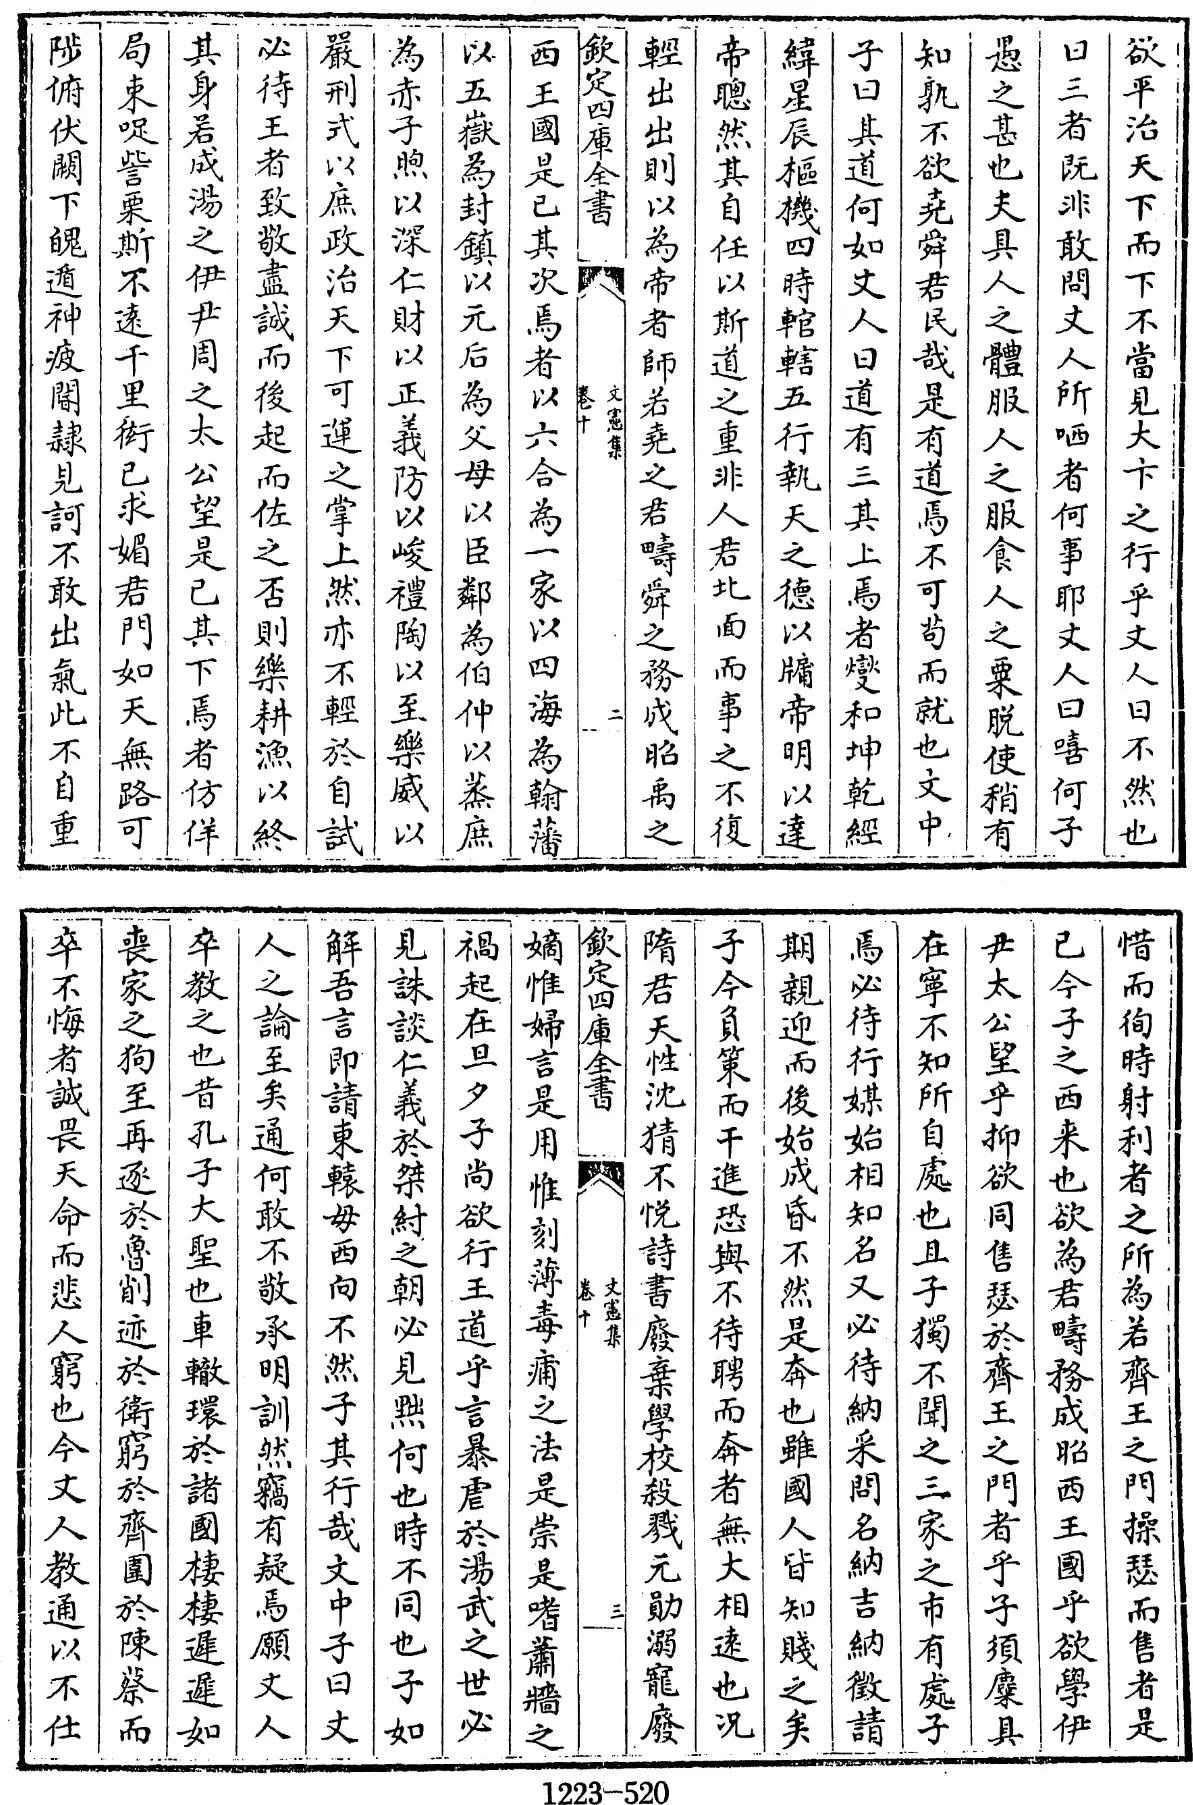 欲平治天下而下不當見大卞之行乎丈人曰不然也
曰三者既非敢問丈人所哂者何事耶丈人曰嘻何子
愚之甚也夫具人之體服人之服食人之粟脱使稍有
知孰不欲堯舜君民哉是有道焉不可苟而就也文中
子曰其道何如丈人曰道有三其上焉者燮和坤乾經
緯星辰樞機四時輨轄五行執天之德以牖帝明以達
帝聰然其自任以斯道之重非人君北面而事之不復
輕出出則以為帝者師若堯之君疇舜之務成昭禹之
欽定四庫全書
文憲集
卷十
二
西王國是已其次焉者以六合為一家以四海為翰藩
以五嶽為封鎮以元后為父母以臣鄰為伯仲以蒸庶
為赤子煦以深仁財以正義防以峻禮陶以至樂威以
嚴刑式以庶政治天下可運之掌上然亦不輕於自試
必待王者致敬盡誠而後起而佐之否則樂耕漁以終
其身若成湯之伊尹周之太公望是已其下焉者仿佯
局束哫訾栗斯不遠千里衒已求媚君門如天無路可
陟俯伏闕下魄遁神疲閽隷見訶不敢出氣此不自重
惜而徇時射利者之所為若齊王之門操瑟而售者是
已今子之西来也欲為君疇務成昭西王國乎欲學伊
尹太公望乎抑欲同售瑟於齊王之門者乎子須麋具
在寧不知所自處也且子獨不聞之三家之市有處子
焉必待行媒始相知名又必待納采問名納吉納徵請
期親迎而後始成昏不然是奔也雖國人皆知賤之矣
子今負策而干進恐與不待聘而奔者無大相遠也况
隋君天性沈猜不悦詩書廢棄學校殺戮元勛溺寵廢
欽定四庫全書
文憲集
卷十
三
嫡惟婦言是用惟刻薄毒痡之法是崇是嗜蕭牆之
禍起在旦夕子尚欲行王道乎言暴虐於湯武之世必
見誅談仁義於桀紂之朝必見黜何也時不同也子如
解吾言即請東轅毋西向不然子其行哉文中子曰丈
人之論至矣通何敢不敬承明訓然竊有疑焉願丈人
卒教之也昔孔子大聖也車轍環於諸國棲棲遲遲如
喪家之狗至再逐於魯削迹於衛窮於齊圍於陳蔡而
卒不悔者誠畏天命而悲人窮也今丈人教通以不仕
1223-520